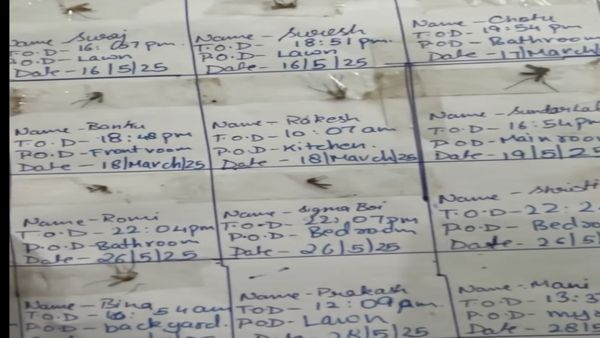 Name - Suraj
T.O.D - 16:07 pm.
P.O.D - Lawn
Date - 16/5/25
Name - Suresh
T.O.D - 18:51 pm.
P.O.D - Lawn
Date - 16/5/25
Name - Chotu
T.O.D - 19:54 pm
P.O.D - Bathroom
Date - 17/March/
Name - Bantu
T.O.D - 18:48 pm
P.O.D - Front room
Date - 18/March/25
Name - Rakesh
T.O.D - 10:07 am
P.O.D - Kitchen.
Date - 18/March/25
Name - Sundarlal
T.O.D - 16:54 pm
P.O.D - Main room
Date - 19/5/25
Name - Romi
T.O.D - 22:04 pm
P.O.D - Bathroom
Date - 26/5/25
Name - Sigma Boi
T.O.D - 22:07 pm
P.O.D - Bedroom
Date - 26/5/25
Name - Shristi
T.O.D - 22:2
P.O.D - Bedro
Date - 26/5/
Name - Bina
T.O.D - 54 am
P.O.D - backyard.
Name - Prakash
TOD - 12:09 am.
POD - Lawn
28/5/25
Name - Mani
TOD - 13:3
POD - my
Date - 28/5